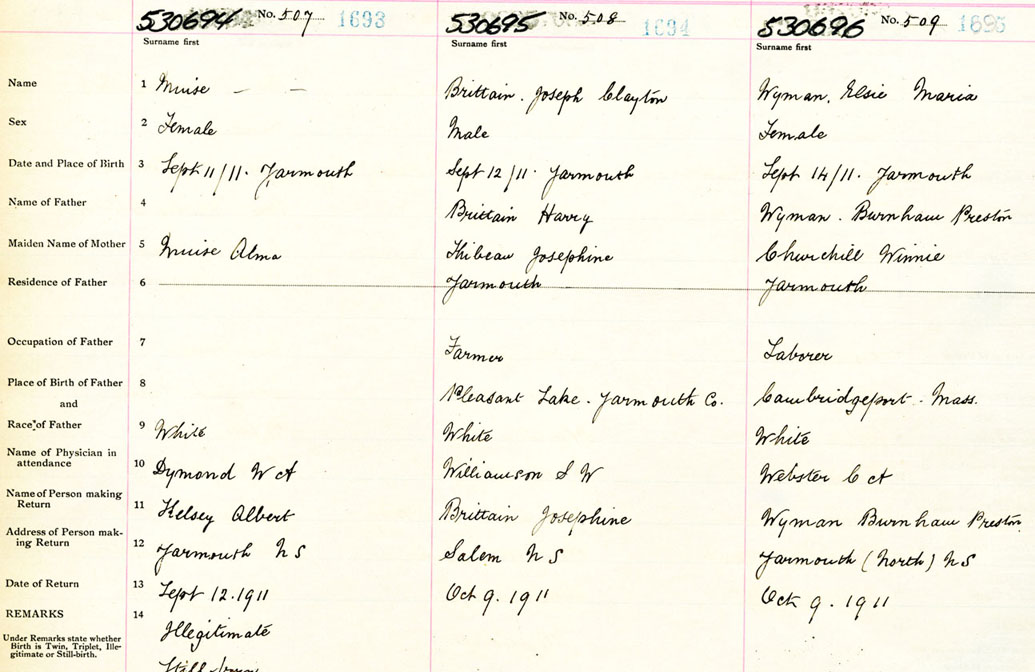 530694 No. 507 1693 530695 No. 508 1694 530696 No. 509 1695
Surname first Surname first Surname first
Name 1 Muise — — Brittain. Joseph Clayton Wyman. Elsie Maria
Sex 2 Female Male Female
Date and Place of Birth 3 Sept 11/11. Yarmouth Sept 12/11. Yarmouth Sept 14/11. Yarmouth
Name of Father 4 Brittain Harry Wyman. Burnham Preston
Maiden Name of Mother 5 Muise Alma Thibeau Josephine Churchill Winnie
Residence of Father 6 Yarmouth Yarmouth
Occupation of Father 7 Farmer Laborer
Place of Birth of Father 8 Pleasant Lake. Yarmouth Co. Cambridgeport. Mass.
and
Race of Father 9 White White White
Name of Physician in
attendance 10 Dymond W A Williamson S W Webster C A
Name of Person making
Return 11 Kelsey Albert Brittain Josephine Wyman Burnham Preston
Address of Person mak-
ing Return 12 Yarmouth N S Salem N S Yarmouth (North) N S
Date of Return 13 Sept 12.1911 Oct 9.1911 Oct 9.1911
REMARKS 14 Illegitimate
Under Remarks state whether
Birth is Twin, Triplet, Ille-
gitimate or Still-birth.
Still born